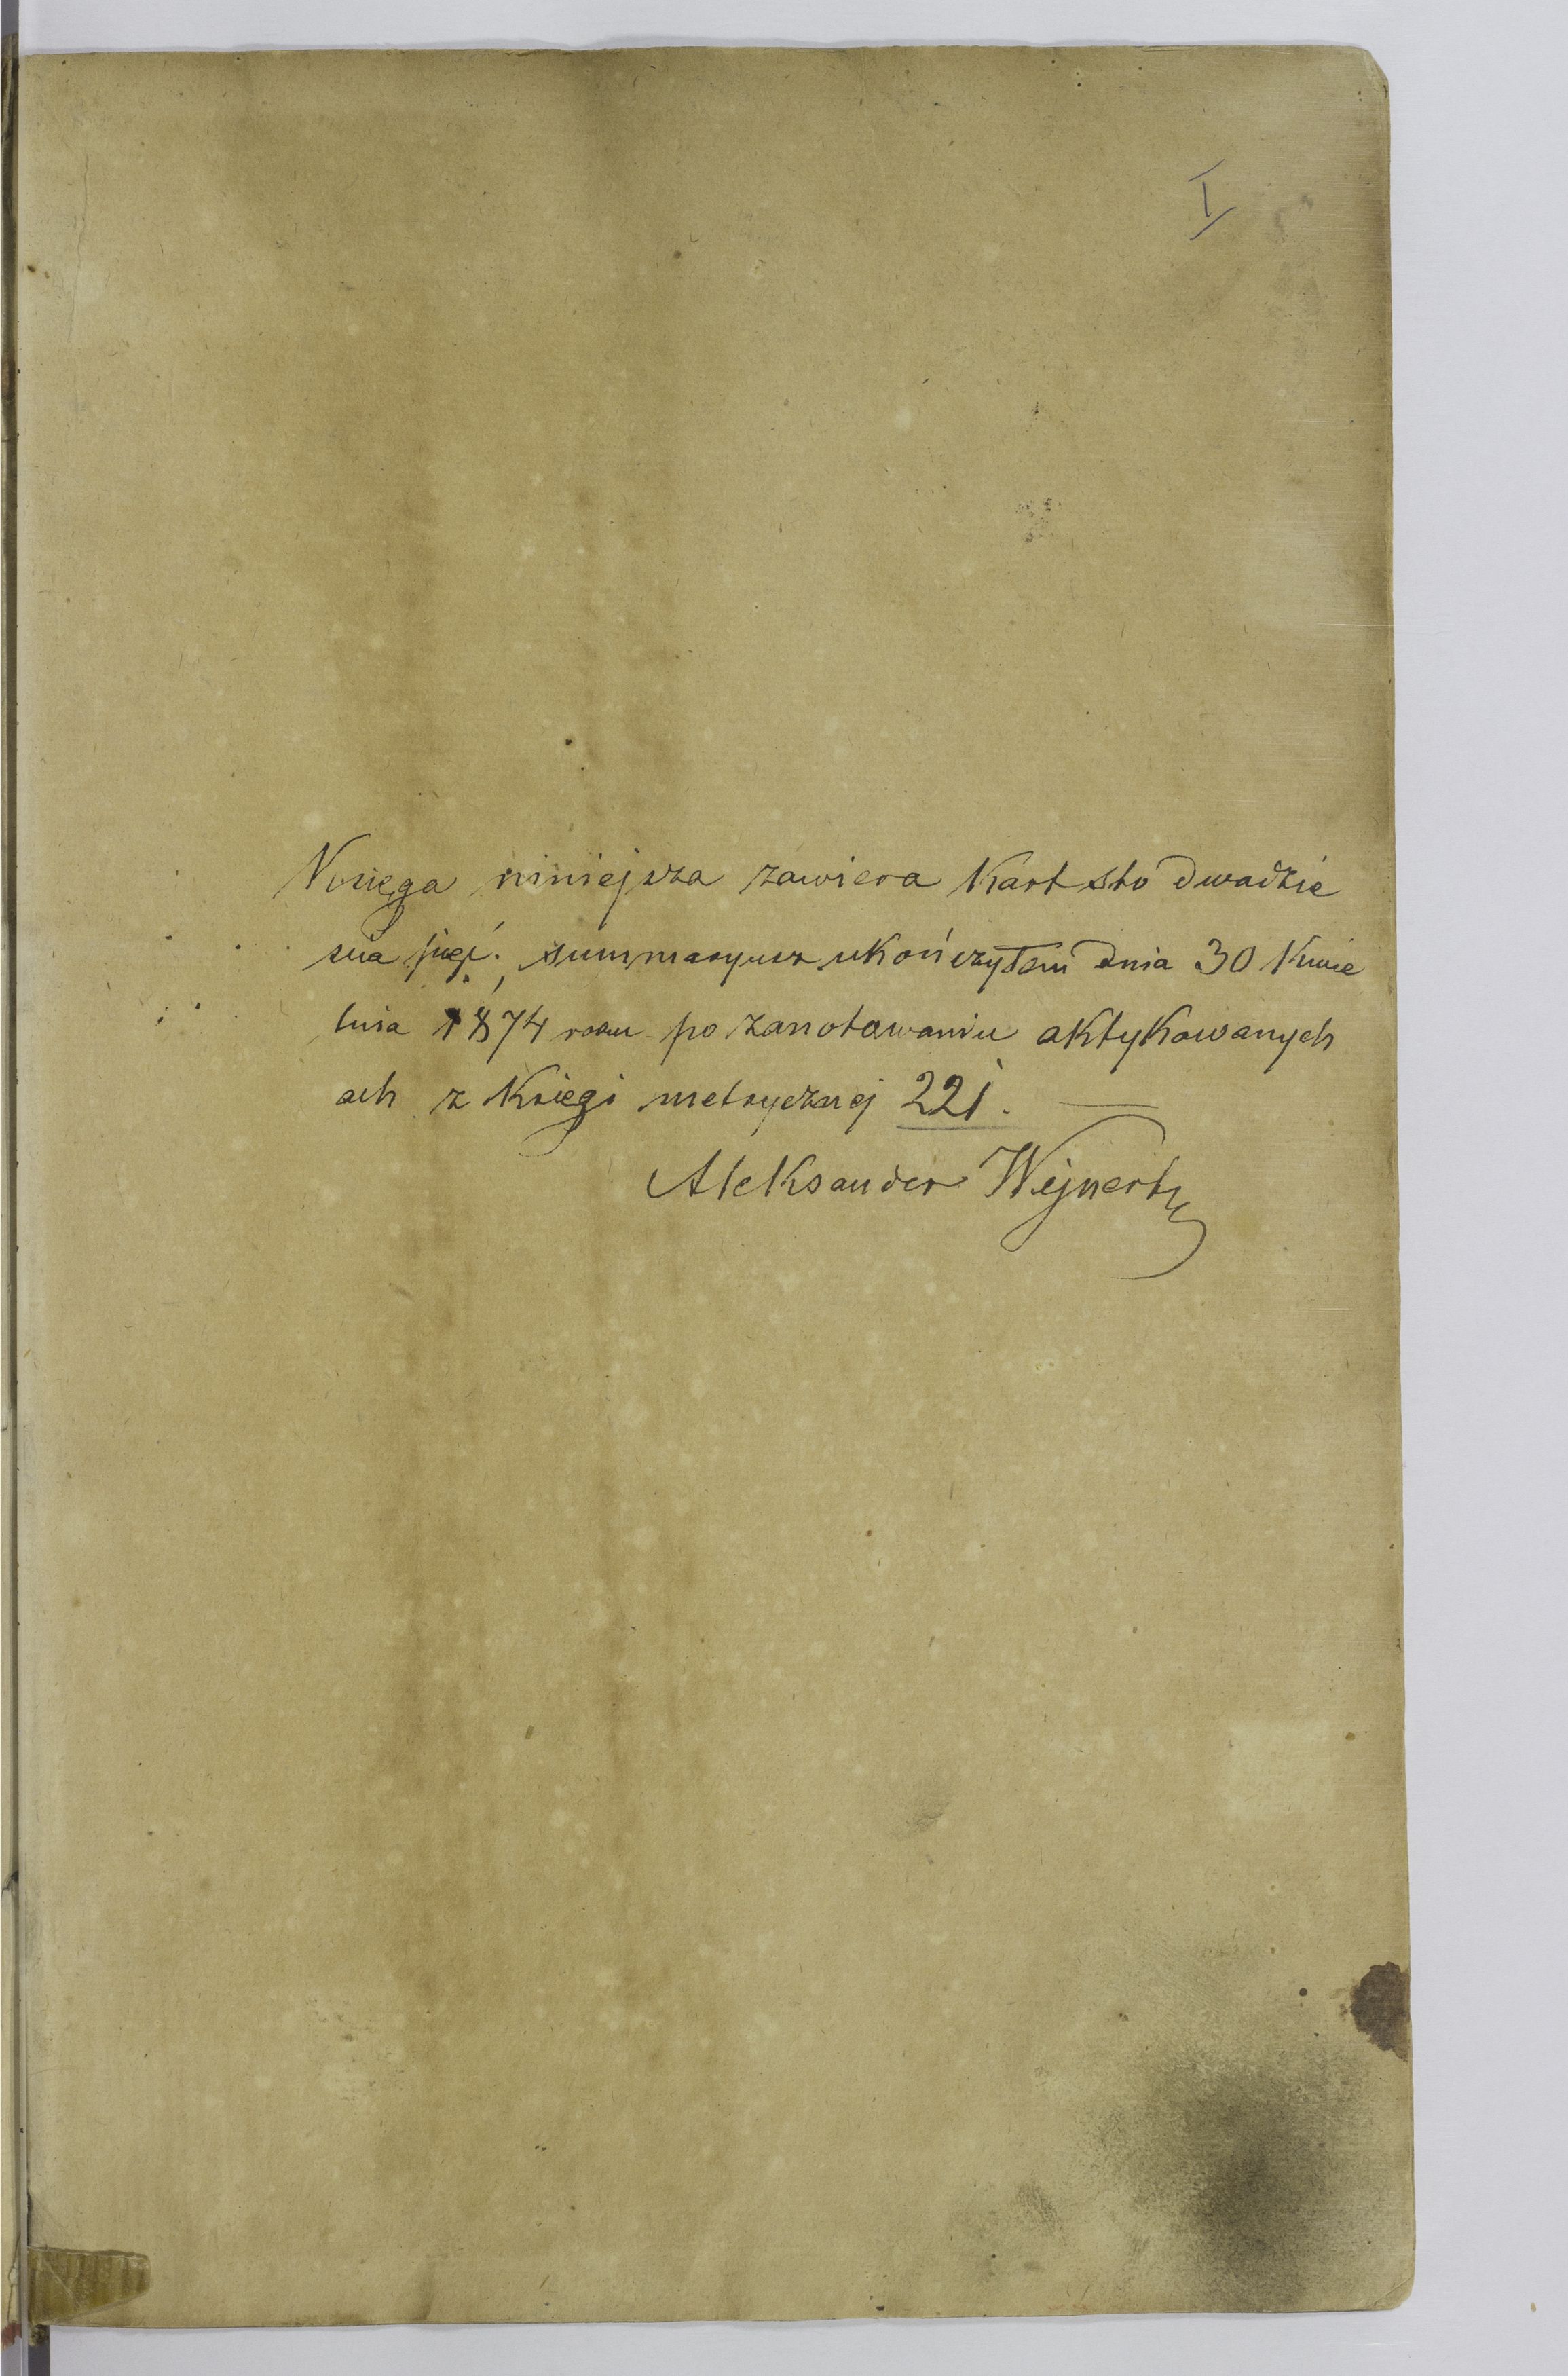 I
Księga niniejsza zawiera Kart sto dwadzie
scia pięć. summaryusz ukończyłem dnia 30 Kwie
tnia 1874 roku po zanotowaniu aktykowanych
ach z Księgi metrycznej 221.
Aleksander Wejnert